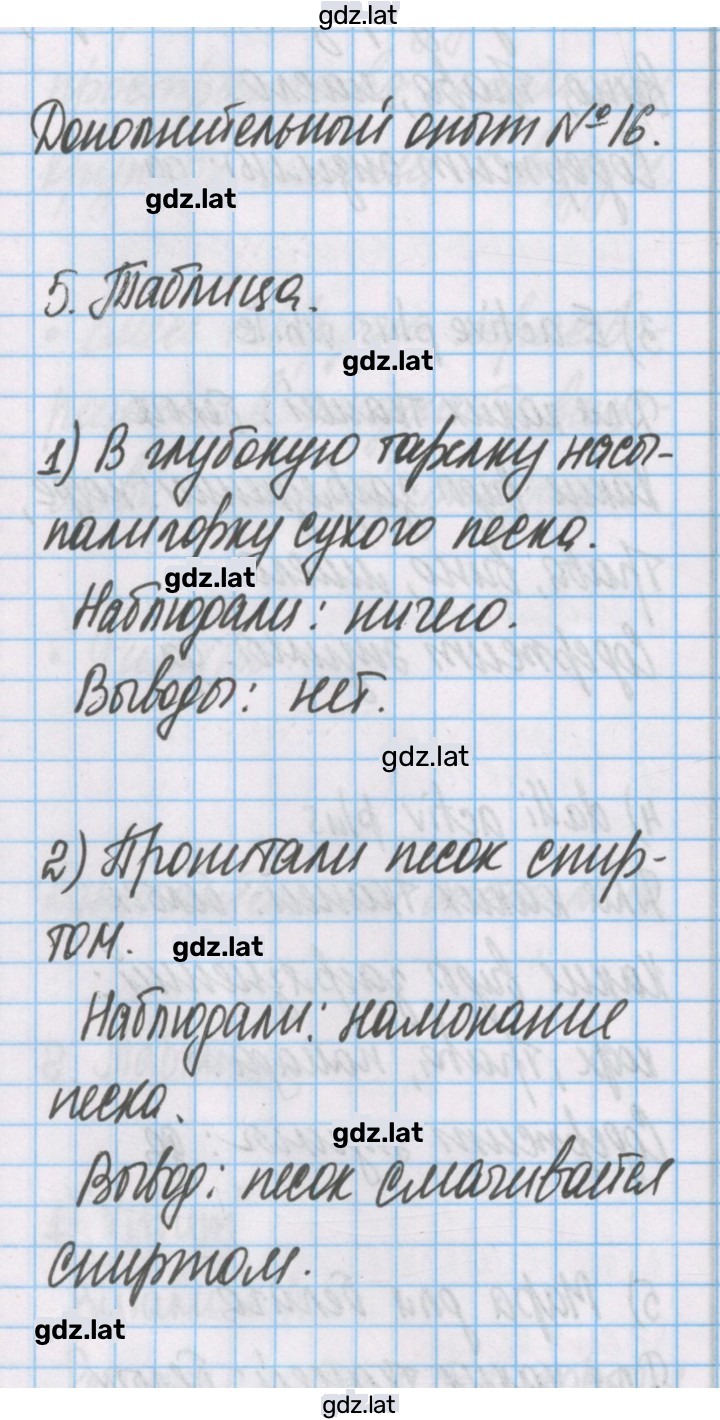 gdz.lat
Дополнительный опыт №16.
gdz.lat
5. Таблица.
gdz.lat
1) В глубокую тарелку насы-
пали горку сухого песка.
gdz.lat
Наблюдали: ничего.
Выводы: нет.
gdz.lat
2) Пропитали песок спир-
том. gdz.lat
Наблюдали: намокание
песка.
gdz.lat
Вывод: песок смачивается
спиртом.
gdz.lat
gdz.lat